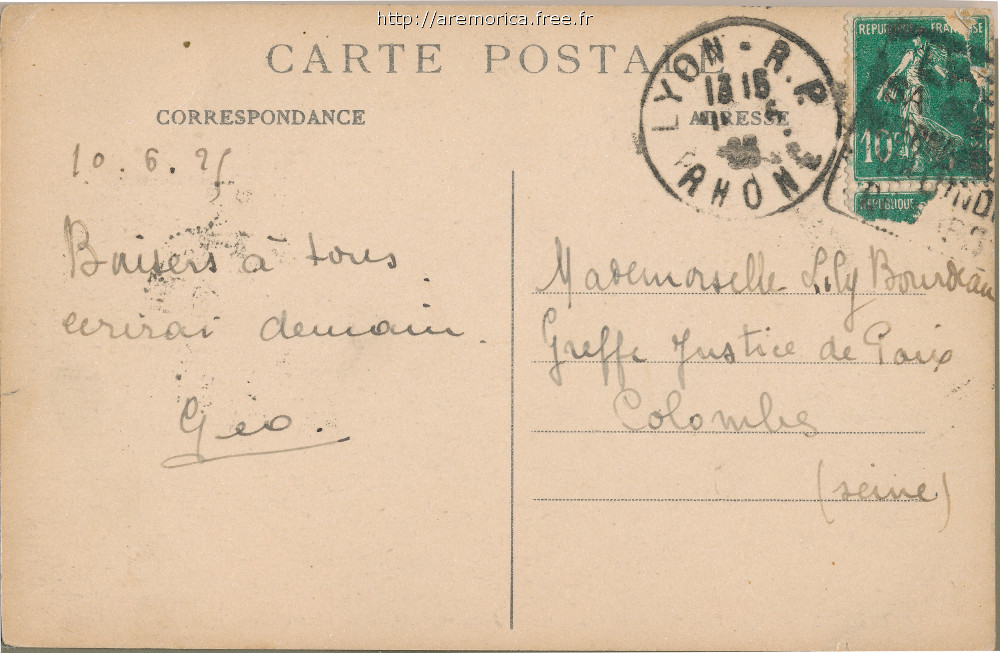 http://aremorica.free.fr
CARTE POSTALE
CORRESPONDANCE
ADRESSE
LYON - R.P.
13 15
RHONE
REPUBLIQUE FRANÇAISE
10c
REPUBLIQUE
10.6.25
Baisers à tous
écrirai demain.
Geo.
Mademoiselle Lily Bourdeau
Greffe Justice de Paix
Colombes
(seine)